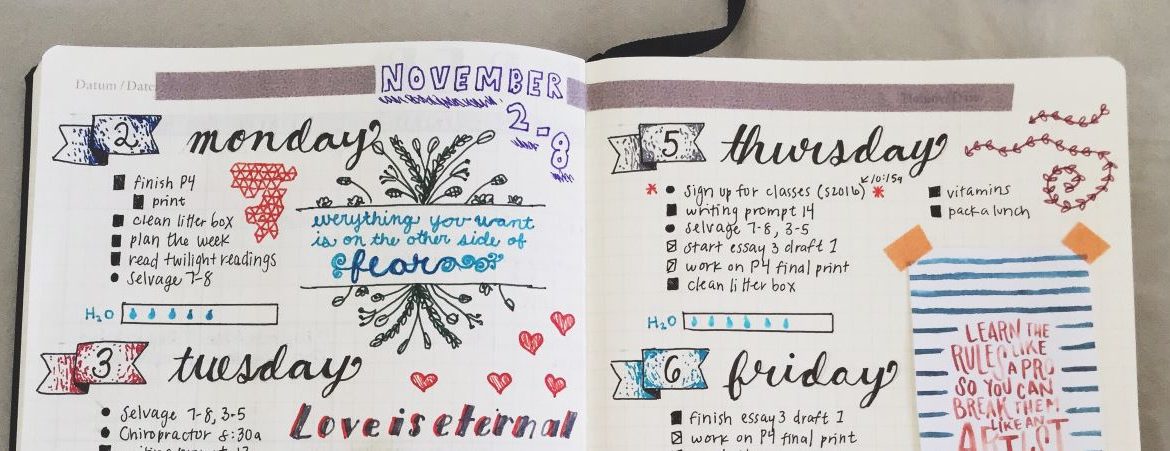 Datum / Date:
NOVEMBER
2-8
2 monday
finish P4
print
clean litter box
plan the week
read twilight readings
Selvage 7-8
H2O
everything you want
is on the other side of
fear
3 tuesday
Selvage 7-8, 3-5
Chiropractor 8:30a
Love is eternal
5 thursday
10:15a
sign up for classes (S2016)
writing prompt 14
selvage 7-8, 3-5
start essay 3 draft 1
work on P4 final print
clean litter box
vitamins
pack a lunch
H2O
6 friday
finish essay 3 draft 1
work on P4 final print
LEARN THE
RULES LIKE
A PRO
SO YOU CAN
BREAK THEM
LIKE AN
ARTIST